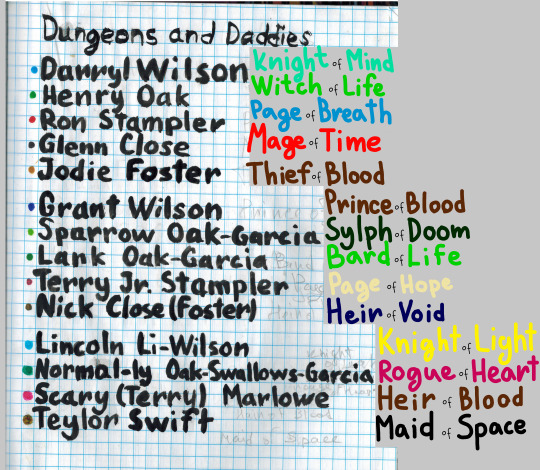 Dungeons and Daddies
Darryl Wilson Knight of Mind
Henry Oak Witch of Life
Ron Stampler Page of Breath
Glenn Close Mage of Time
Jodie Foster Thief of Blood
Grant Wilson Prince of Blood
Sparrow Oak-Garcia Sylph of Doom
Lark Oak-Garcia Bard of Life
Terry Jr. Stampler Page of Hope
Nick Close (Foster) Heir of Void
Lincoln Li-Wilson Knight of Light
Normal-ly Oak-Swallows-Garcia Rogue of Heart
Scary (Terry) Marlowe Heir of Blood
Teylor Swift Maid of Space
Maid of Space